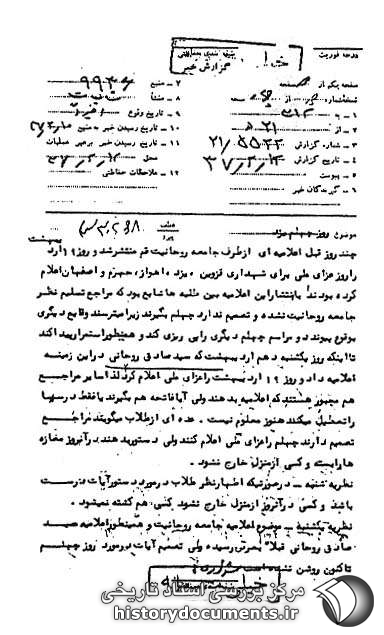 درجه فوریت
طبقه بندی حفاظتی
گزارش خبر
صفحه یکم از صفحه
نسخه شماره از نسخه
۱ - به ۳۱۲
۲ - از ۲۱
۳ - شماره گزارش ۲۱/۵۵۲۲
۴ - تاریخ گزارش
۵ - پیوست
۶ - گیرندگان خبر
۷ - منبع
۸ - منشأ
۹ - تاریخ وقوع
۱۰ - تاریخ رسیدن خبر به منبع
۱۱ - تاریخ رسیدن خبر به رهبر عملیات
محل
۱۲ - ملاحظات حفاظتی
موضوع روز چهلم یزد
چند روز قبل اعلامیه ای از طرف جامعه روحانیت قم منتشر شد و روز ۱۹ اردیبهشت
را روز عزای ملی برای شهدای قزوین ، یزد ، اهواز ، جهرم و اصفهان اعلام
کرده بودند با انتشار این اعلامیه بین طلبه ها شایع بود که مراجع تسلیم نظر
جامعه روحانیت نشده و تصمیم ندارد چهلم بگیرند زیرا میترسند وقایع دیگری
بوقوع بپیوندد و مراسم چهلم دیگری را پی ریزی کند و همینطور استمرار پیدا کند
تا اینکه روز یکشنبه دهم اردیبهشت که سید صادق روحانی در این زمینه
اعلامیه داد و روز ۱۹ اردیبهشت را عزای ملی اعلام کرد لذا سایر مراجع
هم مجبور هستند که اعلامیه بدهند ولی آیا فاتحه هم بگیرند یا فقط درسها
را تعطیل میکنند هنوز معلوم نیست . عده ای از طلاب میگویند مراجع
تصمیم دارند چهلم را عزای ملی اعلام کنند ولی دستور بدهند در آنروز مغازه
ها را بسته و کسی از منزل خارج نشود .
نظریه شنبه - در صورتیکه اظهار نظر طلاب در مورد دستور آیات درست
باشد و کسی در آنروز از منزل خارج نشود کسی هم کشته نمیشود .
نظریه یکشنبه - موضوع اعلامیه جامعه روحانیت و همینطور اعلامیه سید
صادق روحانی قبلا" بعرض رسیده ولی تصمیم آیات در مورد روز چهلم
تاکنون روشن نشده است
مرکز بررسی اسناد تاریخی
historydocuments.ir